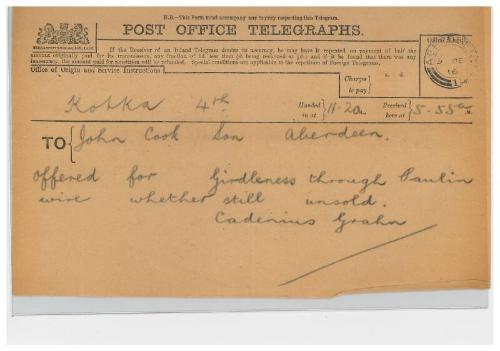 N.B.—This Form must accompany any inquiry respecting this Telegram.
POST OFFICE TELEGRAPHS.
If the Receiver of an Inland Telegram doubts its accuracy, he may have it repeated on payment of half the
amount originally paid for its transmission, any fraction of 1d. less than ½d. being reckoned as ½d.; and if it be found that there was any
inaccuracy, the amount paid for repetition will be refunded. Special conditions are applicable to the repetition of Foreign Telegrams.
Office of Origin and Service Instructions.
Charges
to pay
s. d.
Kotka 4th
Handed
in at
11-20a
Received
here at
5-55a
M.
TO
John Cook Son Aberdeen.
offered for Girdleness through Paulin
wire whether still unsold.
Cadenius Grahn